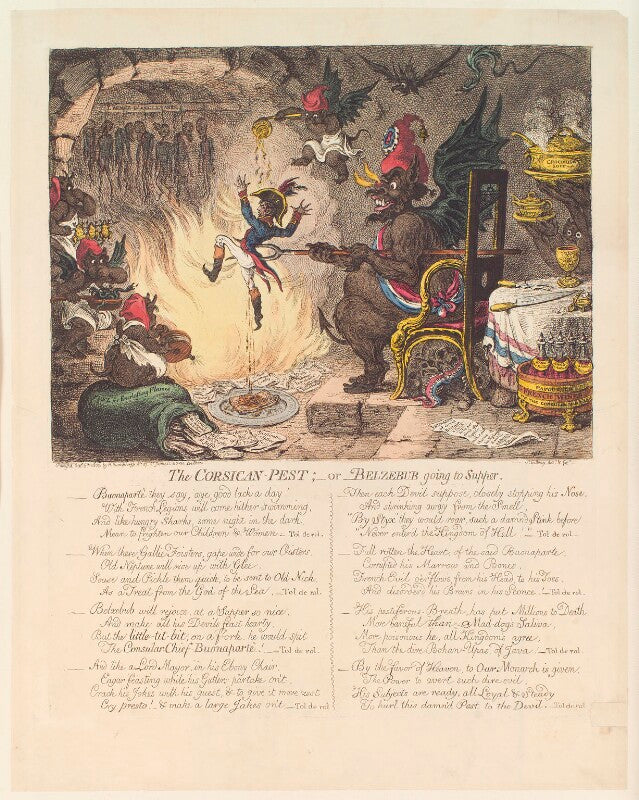 The CORSICAN-PEST; — or — BELZEBUB going to Supper.
Buonaparté they say, aye good lack a day
With French Legions will come hither swimming,
And like hungry Sharks, some night in the dark
Mean to frighten our Children & Women. — Tol de rol
When these Gallic Foisters, gape wide for our Oisters,
Old Neptune will rise up with Glee,
Souse and Pickle them quick, to be sent to Old Nick
As a Treat from the God of the Sea. — Tol de rol.
Belzebub will rejoice, at a Supper so nice
And make all his Devils feast hearty,
But the little-tit-bit, on a fork he would spit
The Consular Chief Buonaparté! — Tol de rol
And like a Lord Mayor, in his Ebony Chair
Eager feasting while his Guttlers partake on't
Crack his Jokes with his guest, & to give it more zest
Cry presto! & make a large Jakes on't — Tol de rol
Then each Devil suppost, closely stopping his Nose,
And shrinking away from the Smell
"By Styx they would roar, such a damn'd Stink before
Never enter'd the Kingdom of Hell! — Tol de rol.
Full rotten the Heart, of the said Buonaparte,
Corrupted his Marrow and Bones,
French Evil o'erflows from his Head, to his Toes
And disorders his Brains in his Sconce. — Tol de rol.
His pestiferous Breath, has put Millions to Death
More baneful than a Mad-dogs Saliva,
More poisonous he, all Kingdom's agree,
Than the dire Bohan-Upas of Java. — Tol de rol
By the favor of Heaven, to Our Monarch is given,
The Power to avert such dire evil,
His Subjects are ready, all Loyal & Steady
To hurl this damn'd Pest to the Devil. Tol de rol